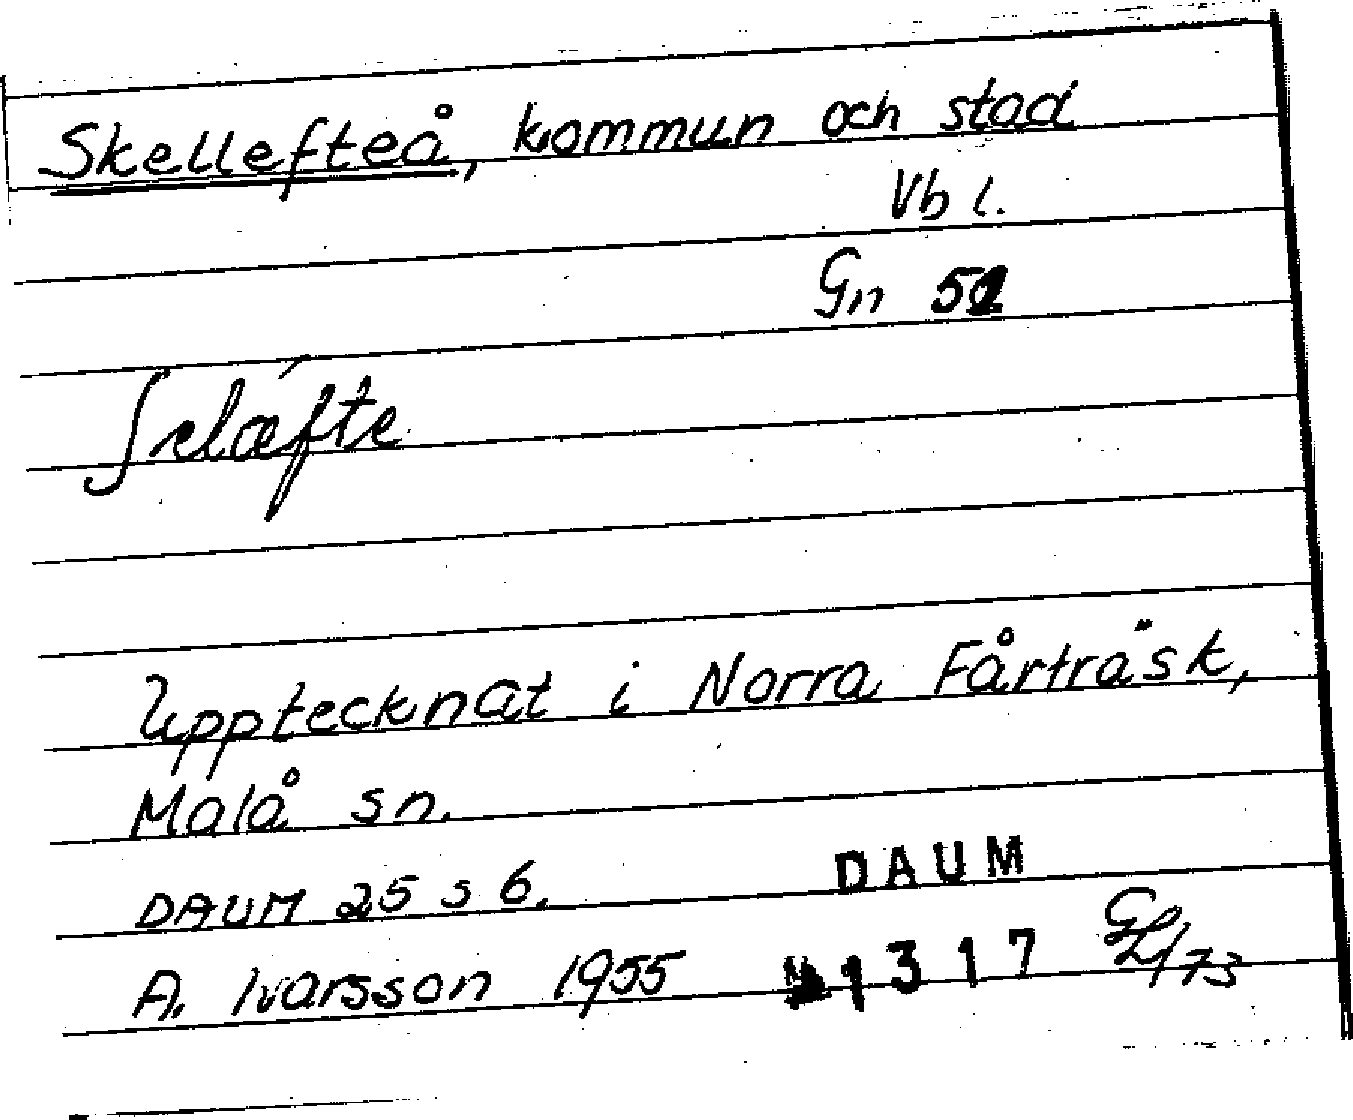 Skellefteå, kommun och stad
Vb l.
Gn
ʃelæ´fte
Upptecknat i Norra Fårträsk,
Malå sn.
DAUM 25 s 6.
DAUM
A. Ivarsson 1955
1317